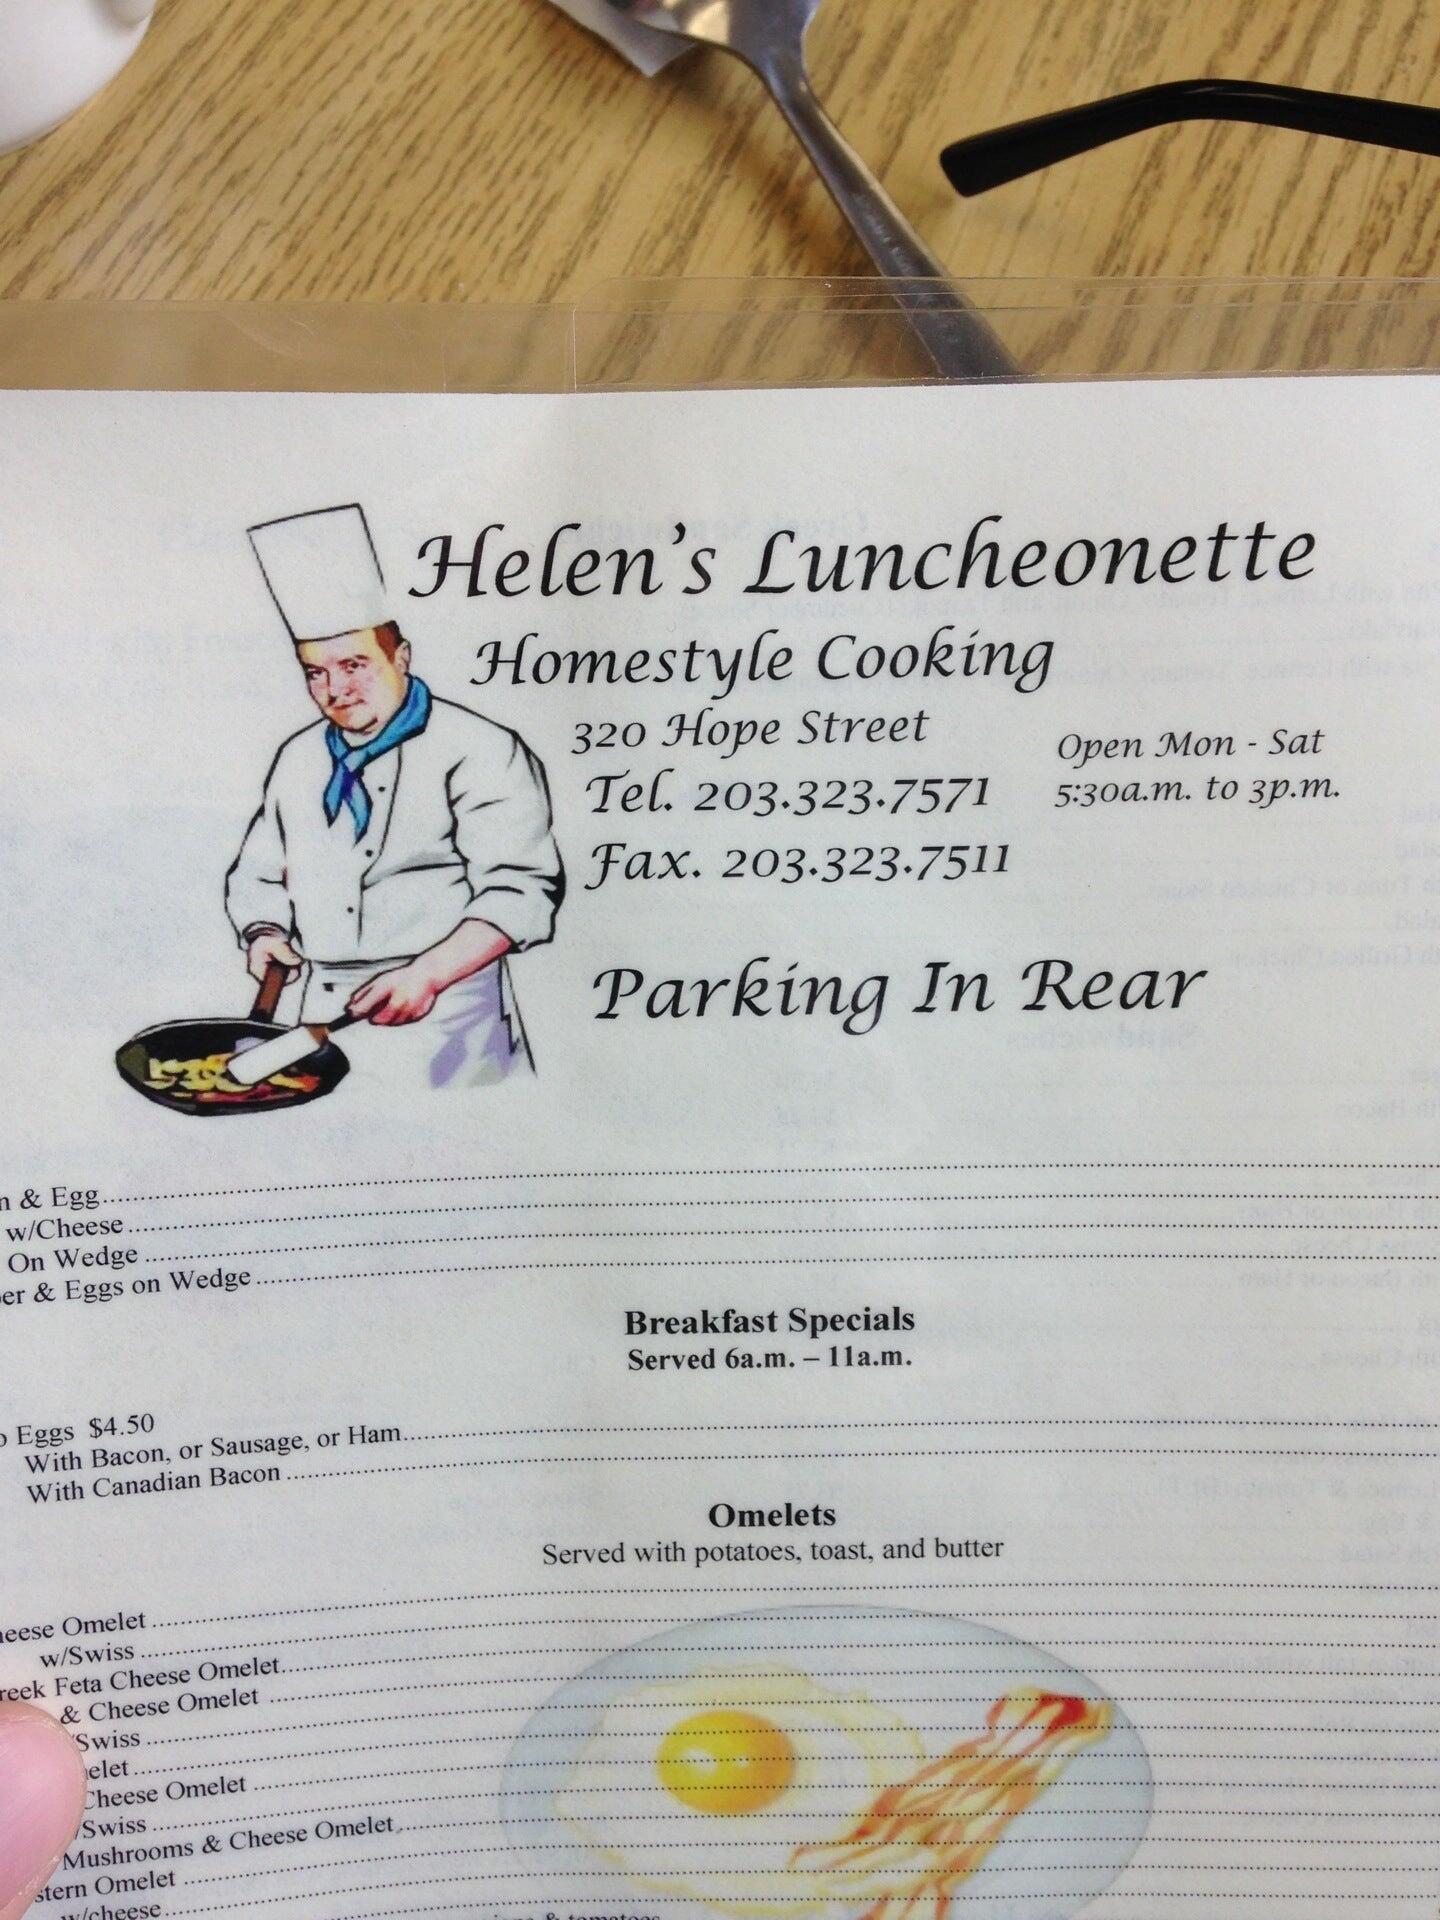 Helen's Luncheonette
Homestyle Cooking
320 Hope Street
Open Mon - Sat
Tel. 203.323.7571
5:30a.m. to 3p.m.
Fax. 203.323.7511
Parking In Rear
& Egg
w/Cheese
On Wedge
& Eggs on Wedge
Breakfast Specials
Served 6a.m. – 11a.m.
Eggs $4.50
With Bacon, or Sausage, or Ham
With Canadian Bacon
Omelets
Served with potatoes, toast, and butter
Omelet
w/Swiss
Feta Cheese Omelet
& Cheese Omelet
/Swiss
Cheese Omelet
/Swiss
Mushrooms & Cheese Omelet
Omelet
w/cheese
& tomatoes